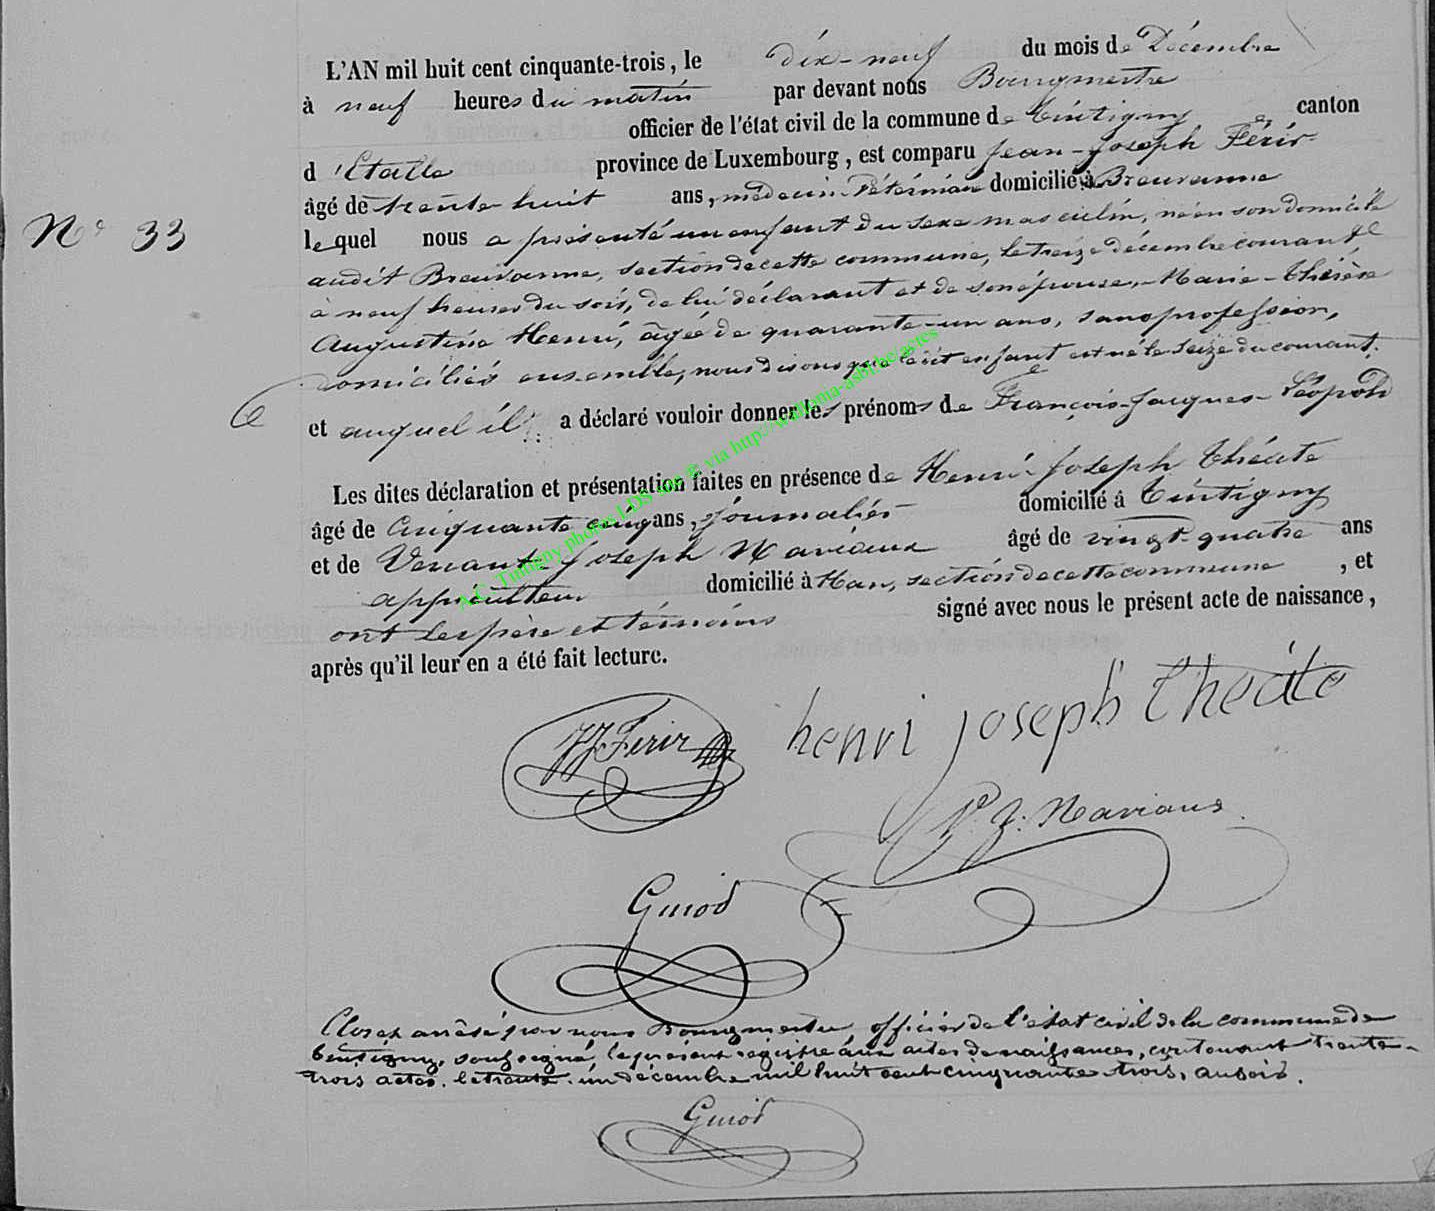 L'AN mil huit cent cinquante-trois, le dix-neuf du mois de Décembre
à neuf heures du matin par devant nous Bourgmestre
officier de l'état civil de la commune de Tintigny, canton
d'Etalle province de Luxembourg, est comparu Jean-Joseph Férir
âgé de trente huit ans, médecin domicilié à Breuvanne
N° 33
lequel nous a présenté un enfant du sexe masculin, né en son domicile
audit Breuvanne, section de cette commune, le treize décembre courant
à neuf heures du soir, de lui déclarant et de son épouse, Marie-Thérèse
Augustine Henri, âgée de quarante-un ans, sans profession,
domiciliés ensemble, nous disons que le dit enfant est né le seize du courant.
et auquel il a déclaré vouloir donner les prénoms de François-Jacques-Léopold
Les dites déclaration et présentation faites en présence de Henri-Joseph Théâte
âgé de cinquante cinq ans, journalier domicilié à Tintigny
et de Joseph Naviaux âgé de vingt-quatre ans
domicilié à Han, section de cette commune, et
ont les père et témoins signé avec nous le présent acte de naissance,
après qu'il leur en a été fait lecture.
JJ Ferir
henri joseph theâte
J. Naviaux
Guiod
Clos et arrêté par nous Bourgmestre, officier de l'état civil de la commune de
Tintigny, soussigné, le présent registre aux actes de naissances, contenant trente-
trois actes. le trente-un décembre mil huit cent cinquante-trois, au soir.
Guiod
A.C. Tintigny photos LDS ann ® via http://wallonia-asbl.be/actes